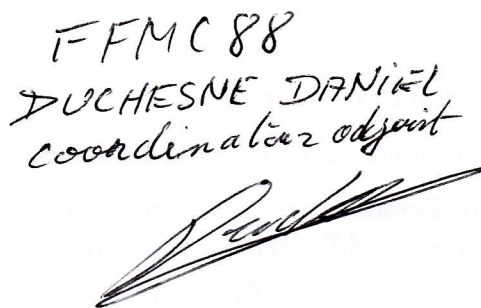 FFMC 88
DUCHESNE DANIEL
coordinateur adjoint